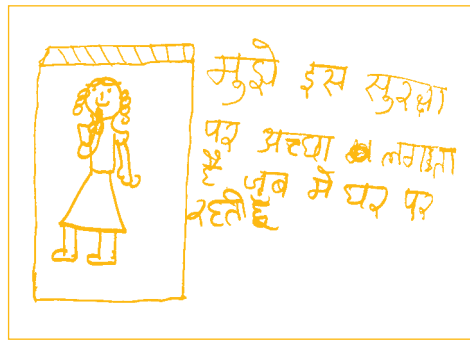 मुझे इस सुरक्षा
पर अच्छा लगता
है जब मे घर पर
रहती हूँ